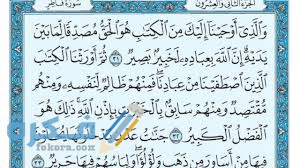 الجزء الثاني والعشرون
سورة فاطر
وَالَّذِي أَوْحَيْنَا إِلَيْكَ مِنَ الْكِتَابِ هُوَ الْحَقُّ مُصَدِّقًا لِّمَا بَيْنَ
يَدَيْهِ إِنَّ اللَّهَ بِعِبَادِهِ لَخَبِيرٌ بَصِيرٌ ٣١ ثُمَّ أَوْرَثْنَا الْكِتَابَ
الَّذِينَ اصْطَفَيْنَا مِنْ عِبَادِنَا فَمِنْهُمْ ظَالِمٌ لِّنَفْسِهِ وَمِنْهُم
مُّقْتَصِدٌ وَمِنْهُمْ سَابِقٌ بِالْخَيْرَاتِ بِإِذْنِ اللَّهِ ذَٰلِكَ هُوَ
الْفَضْلُ الْكَبِيرُ ٣٢ جَنَّاتُ عَدْنٍ يَدْخُلُونَهَا يُحَلَّوْنَ
فِيهَا مِنْ أَسَاوِرَ مِن ذَهَبٍ وَلُؤْلُؤًا وَلِبَاسُهُمْ فِيهَا حَرِيرٌ
fekera.com